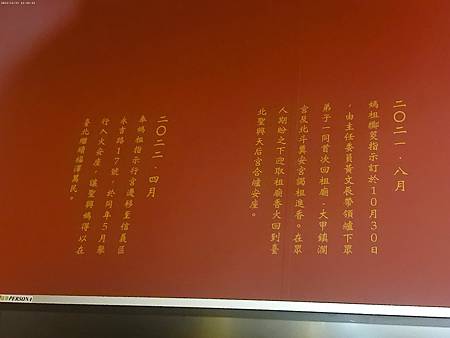 二〇二一．八月
媽祖擲筊指示訂於10月30日
，由主任委員黃文辰帶領爐下眾
弟子一同首次回祖廟-大甲鎮瀾
宮及北斗奠安宮謁祖進香。在眾
人期盼之下迎取祖廟香火回到臺
北聖興天后宮合爐安座。
二〇二二．四月
奉媽祖指示行宮遷移至信義區
永吉路17號，於同年5月舉
行入火安座，讓聖興媽得以在
臺北繼續福澤萬民。
PERSONA